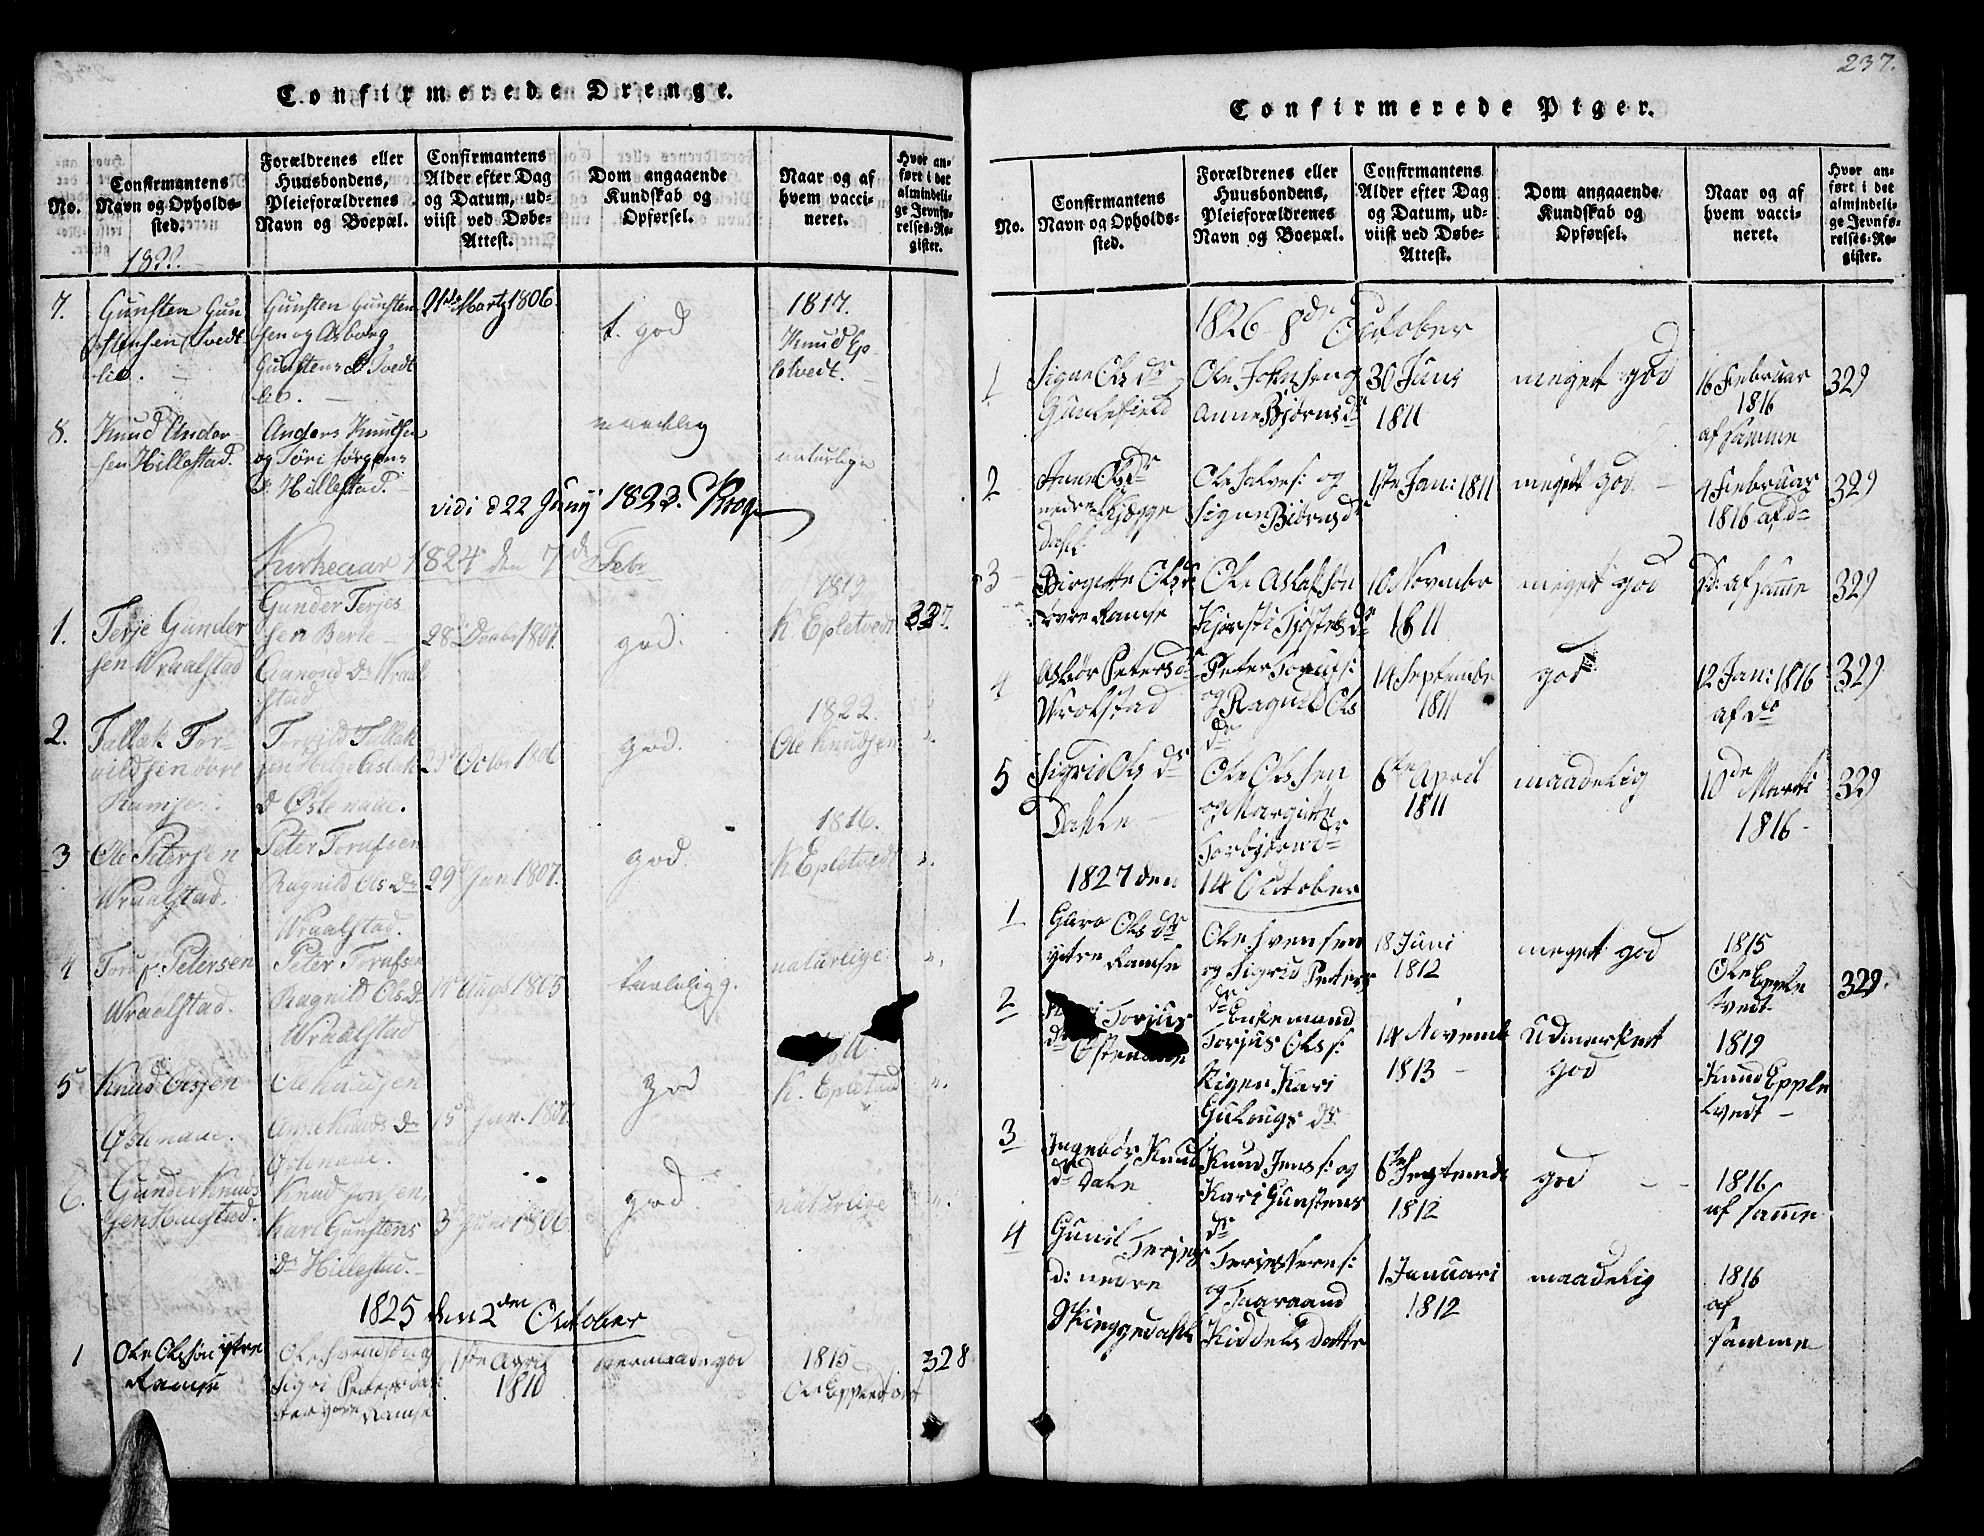 Confirmerede Drenge.
No.
Confirmantens Navn og Opholdssted.
Forældrenes eller Huusbondens, Pleieforældrenes Navn og Boepæl.
Confirmantens Alder efter Dag og Datum, udviist ved Døbe-Attest.
Dom angaaende Kundskab og Opførsel.
Naar og af hvem vaccineret.
Hvor anført i det almindelige Jevnførelses-Register.
7.
Gunsten Gun
Gunsten Gunsten
sen og Asborg
21de Martz 1806
t. god
1817.
Knud Ep-
letvedt.
8.
Knud Ander-
sen Hillestad.
Anders Knudsen
og
d. Hillestad.
maadelig
naturlige
vidi d 22 Juny 1823. Krog
Kirkeaar 1824 den 7de Febr
1.
Terje Gunder
sen Wraalstad
Gunder Terjes
sen
Aanond D. Wraal
stad
28 Decbr 1807.
god.
1819
K. Epletvedt
327.
2.
Tallak Tor-
vildsen
Ramse.
Torvild Tallak
sen
d Østenaae.
29 Octbr 1806
god.
1822.
Ole Knudsen
3
Ole Petersen
Wraalstad.
Peter Torufsen
Ragnild Ols Dr
Wraalstad.
29 Jan 1807.
god.
1816.
K Epletvedt
4
Toruf Petersen
Wraalstad.
Peter Torufsen
Ragnild Ols Dr
Wraalstad
Augs 1805
taalelig.
naturlige
5
Knud Olsen
Østenaae.
Ole Knudsen
Knuds Dr
Østenaae.
15 Jan. 1807
god
K. Epletvedt
Gunder Knud
sen Hillestad.
Knud
Kari Gunstens
Dr Hillestad.
1806
god
naturlige
1825 den 2den October
1
Ole Olssøn ytre
Ramse
Ole Svensøn og
Sigri Peters dat
ter Ramse
1ste April
1810
overmaade god
1815
Ole Eppletvet
328
237.
Confirmerede Piger.
No.
Confirmantens Navn og Opholdssted.
Forældrenes eller Huusbondens, Pleieforældrenes Navn og Boepæl.
Confirmantens Alder efter Dag og Datum, udviist ved Døbe-Attest.
Dom angaaende Kundskab og Opførsel.
Naar og af hvem vaccineret.
Hvor anført i det almindelige Jevnførelses-Register.
1826 8de October
1
Signe Ols dr
Ole Johnsen og
Anne Bjørns dr
30 Juni
1811
meget god
16 Februar
1816
af samme
329
2
Anne Ols dr
nedre Skjægge
dahl
Ole Salves: og
Signe Biørns dr
1ste Jan: 1811
meget god
4 Februar
1816 af do
329
3
Birgitte Ols dr
øvre Ramse
Ole Aslaksøn
Kjersti Tjøstels dr
10 November
1811
meget god
do: af samme
329
4
Asbør Peters dr
Urolstad
Peter Torufs:
og Ragnild Ols
dr
14 September
1811
god
12 Jan: 1816
af do
329
5
Sigrid Ols dr
Dahle
Ole Olssen
og Margitte
Torbjørnsdr
6te April
1811
maadelig
10de Marti
1816
329
1827 den 14 October
1
Guro Ols dr
ytre Ramse
Ole Svensen
og Sigrid Peters
dr
18 Juni
1812
meget god
1815
Ole Epple
tvedt
329.
2
Torjus
dr
Østenaae
Enkemand
Torjus Ols s:
Kari
Gulougs dr
14 Novemb
1813
Udmærket
god
1819
Knud Epple
tvedt
3
Ingebør Knud
dr Dale
Knud Jens s: og
Kari Gunstens
dr
6te Septemb
1812
god
1816
af samme
4
Gunil Terjes
d: nedre
Skieggedahl
og Taaraand
Kiddels datter
1 Januari
1812
maadelig
1816
af
samme